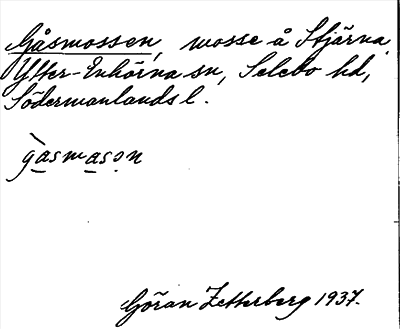 Gåsmossen, mosse å Stjärna,
Ytter-Enhörna sn, Selebo hd,
Södermanlands l.
`gasmason
Göran Zetterberg 1937.